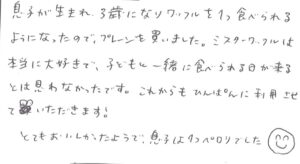 息子が生まれ、3歳になりワッフルを1つ食べられる
ようになったので、プレーンを買いました。ミスターワッフルは
本当に大好きで、子どもと一緒に食べられる日が来る
とは思わなかったです。これからもひんぱんに利用させ
ていただきます!
とてもおいしかったようで、息子は1つペロリでした